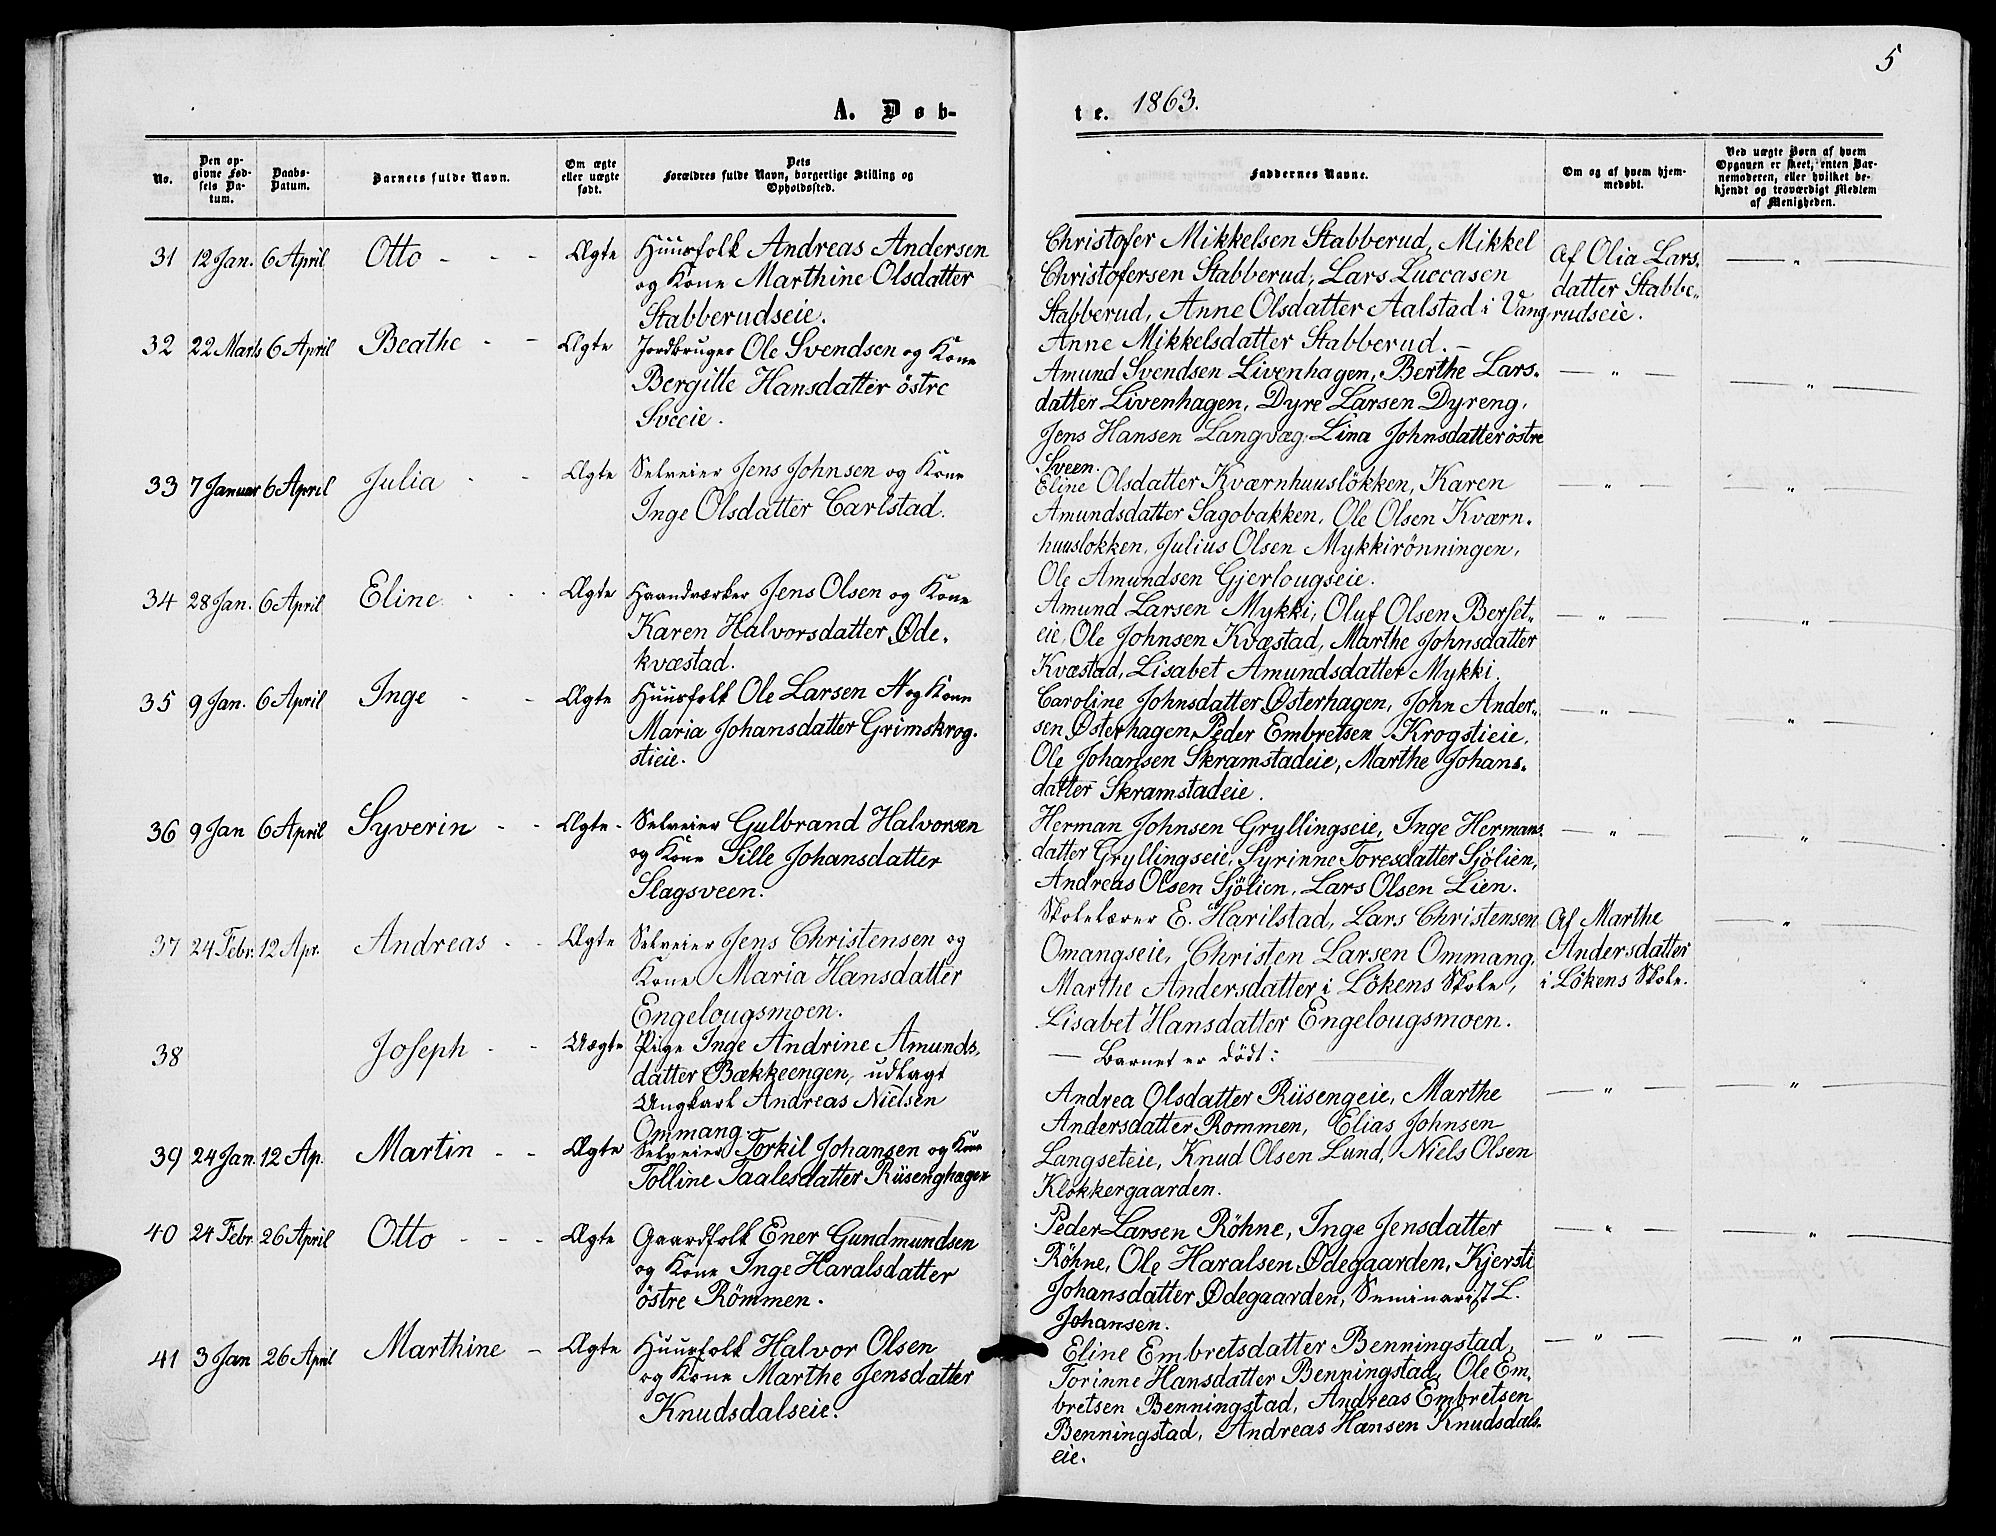 5
A. Døb-
te. 1863.
No.
Den op-
givne Fød-
sels Da-
tum.
Daabs-
Datum.
Barnets fulde Navn.
Om ægte
eller uægte
født.
Dets
Forældres fulde Navn, borgerlige Stilling og
Opholdssted.
Faddernes Navne.
Om og af hvem hjem-
medøbt.
Ved uægte Børn af hvem
Opgaven er skeet, enten Bar-
nemoderen, eller hvilket be-
kjendt og troværdigt Medlem
af Menigheden.
31 12 Jan. 6 April Otto - - - Ægte Huusfolk Andreas Andersen
og Kone Marthine Olsdatter
Stabberudseie.
Christofer Mikkelsen Stabberud, Mikkel
Christofersen Stabberud, Lars Luccasen
Stabberud, Anne Olsdatter Aalstad i Vang,
Anne Mikkelsdatter Stabberud. -
Af Olia Lars-
datter Stabbe-
rudseie.
— " —
32 22 Marts 6 April Beathe - - Ægte Jordbruger Ole Svendsen og Kone
Bergitte Hansdatter östre
Sveeie.
Amund Svendsen Livenhagen, Berthe Lars-
datter Livenhagen, Dyre Larsen Dyreng,
Jens Hansen Langvæg, Lina Johnsdatter östre
Sveen.
— " — — " —
33 7 Januar 6 April Julia - - Ægte Selveier Jens Johnsen og Kone
Inge Olsdatter Carlstad.
Eline Olsdatter Kværnhuuslökken, Karen
Amundsdatter Sagobakken, Ole Olsen Kværn-
huuslokken, Julius Olsen Mykkirönningen,
Ole Amundsen Gjerlougseie.
— " — — " —
34 28 Jan. 6 April Eline - - - Ægte Haandværker Jens Olsen og Kone
Karen Halvorsdatter Øde-
kvæstad.
Amund Larsen Mykki, Oluf Olsen Berset-
eie, Ole Johnsen Kvæstad, Marthe Johnsdatter
Kvæstad, Lisabet Amundsdatter Mykki.
— " — — " —
35 9 Jan. 6 April Inge - - Ægte Huusfolk Ole Larsen N og Kone
Maria Johansdatter Grimskrog-
stieie.
Caroline Johnsdatter Østerhagen, John Ander-
sen Østerhagen, Peder Embretsen Krogstieie,
Ole Johansen Skramstadeie, Marthe Johans-
datter Skramstadeie.
— " — — " —
36 9 Jan 6 April Syverin - - Ægte - Selveier Gulbrand Halvorsen
og Kone Sille Johansdatter
Slagsveen.
Herman Johnsen Gryllingseie, Inge Hermans-
datter Gryllingseie, Syrinne Toresdatter Sjölien,
Andreas Olsen Sjölien, Lars Olsen Lien.
— " — — " —
37 24 Febr. 12 Apr. Andreas - - Ægte Selveier Jens Christensen og
Kone Maria Hansdatter
Engelougsmoen.
Skolelærer E. Harilstad, Lars Christensen
Omangseie, Christen Larsen Ommang,
Marthe Andersdatter i Lökens Skole,
Lisabet Hansdatter Engelougsmoen.
Af Marthe
Andersdatter
i Lökens Skole.
— " —
38 Joseph - - Uægte Pige Inge Andrine Amunds-
datter Bækkeengen, udlagt
Ungkarl Andreas Nielsen
Ommang.
— Barnet er dödt:
39 24 Jan. 12 Ap. Martin - - Ægte Selveier Torkil Johansen og Kone
Tolline Taalesdatter Riisenghagen
Andrea Olsdatter Riisengeie, Marthe
Andersdatter Rommen, Elias Johnsen
Langseteie, Knud Olsen Lund, Niels Olsen
Klokkergaarden.
— " — — " —
40 24 Febr. 26 April Otto - - - Ægte Gaardfolk Ener Gundmundsen
og Kone Inge Haralsdatter
östre Römmen.
Peder Larsen Röhne, Inge Jensdatter
Röhne, Ole Haralsen Ødegaarden, Kjersti
Johansdatter Ødegaarden, Seminarist L.
Johansen.
— " — — " —
41 3 Jan 26 April Marthine - Ægte Huusfolk Halvor Olsen
og Kone Marthe Jensdatter
Knudsdalseie.
Eline Embretsdatter Benningstad,
Torinne Hansdatter Benningstad, Ole Em-
bretsen Benningstad, Andreas Embretsen
Benningstad, Andreas Hansen Knudsdals-
eie.
— " — — " —